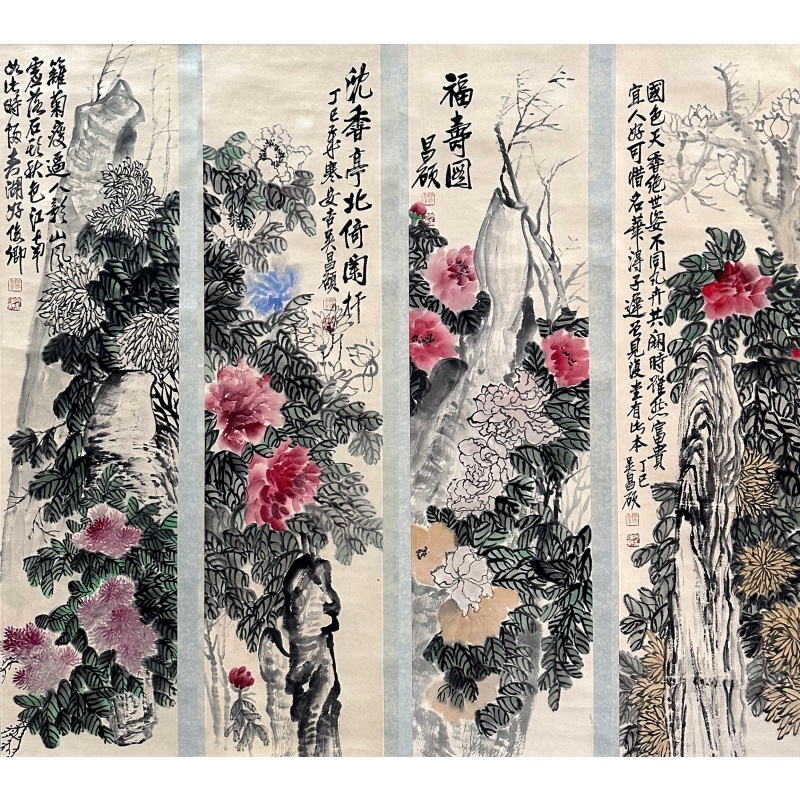 國色天香絕世姿不同凡卉共開時雖然富貴
宜人好可惜名華得子遲見復堂有此本 丁巳
吳昌碩
福壽圖
昌碩
沈香亭北倚闌杆
丁巳歲寒安吉吳昌碩
籬菊瘦逼人影山風
處落石秋色江南
如此時飯老湖好俊卿